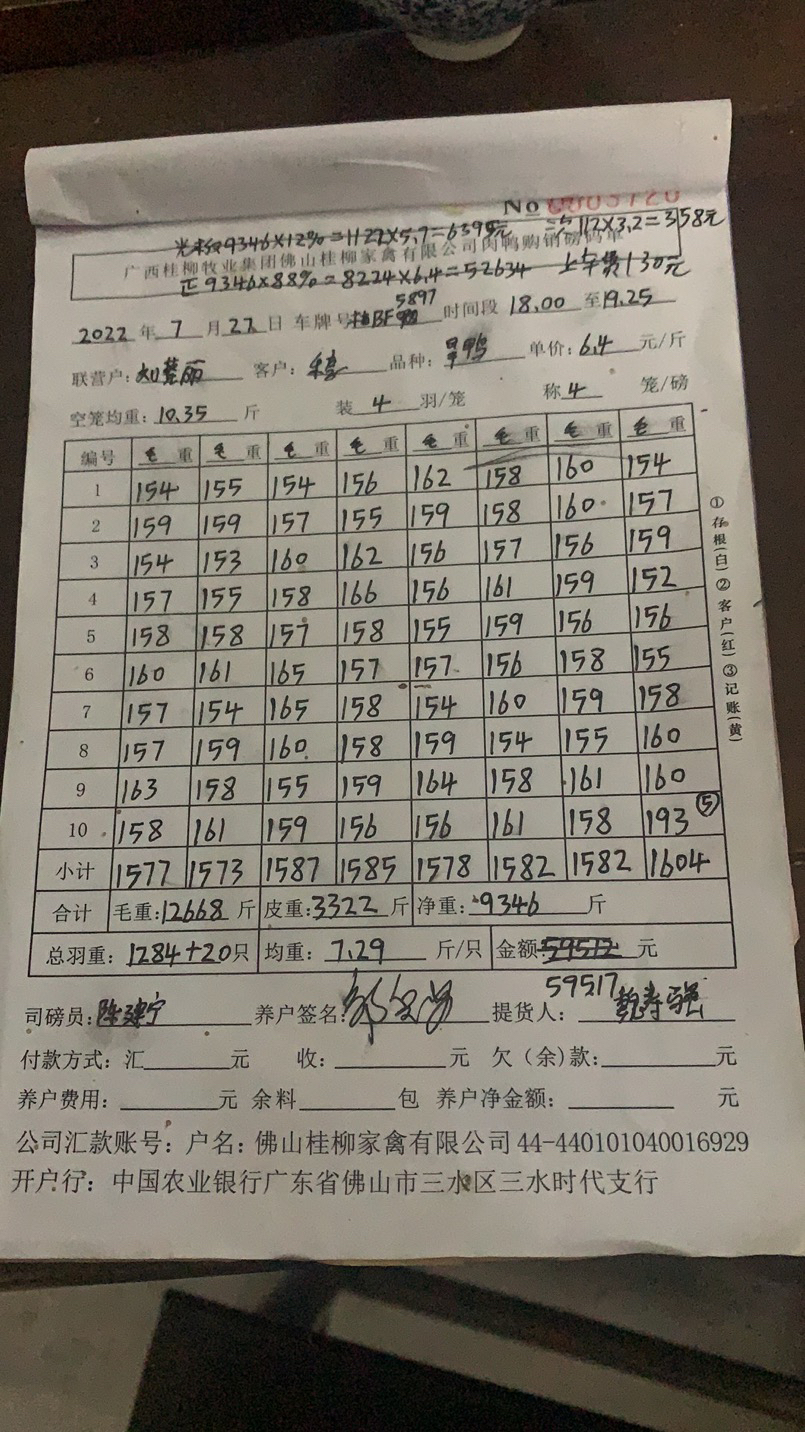 No 0003720
9346×12%=1122×5.7=6395元 112×3.2=358元
广西桂柳牧业集团佛山桂柳家禽有限公司肉鸭购销磅码单
正9346×88%=8224×6.4=52634 上车费130元
5897
2022年7月27日 车牌号: 时间段18.00至19.25
联营户: 客户: 品种:旱鸭 单价:6.4元/斤
空笼均重:10.35斤 装4羽/笼 称4笼/磅
编号 毛重 毛重 毛重 毛重 毛重 毛重 毛重 毛重
1 154 155 154 156 162 158 160 154
2 159 159 157 155 159 158 160 157
3 154 153 160 162 156 157 156 159
4 157 155 158 166 156 161 159 152
5 158 158 157 158 155 159 156 156
6 160 161 165 157 157 156 158 155
7 157 154 165 158 154 160 159 158
8 157 159 160 158 159 154 155 160
9 163 158 155 159 164 158 161 160
10 158 161 159 156 156 161 158 193 ⑤
小计 1577 1573 1587 1585 1578 1582 1582 1604
合计 毛重:12668斤 皮重:3322斤 净重:9346斤
总羽重:1284+20只 均重:7.29斤/只 金额:59512元
59517
司磅员:陈建宁 养户签名: 提货人:
付款方式:汇 元 收: 元 欠(余)款: 元
养户费用: 元 余料 包 养户净金额: 元
公司汇款账号:户名:佛山桂柳家禽有限公司44-440101040016929
开户行:中国农业银行广东省佛山市三水区三水时代支行
①存根(白)②客户(红)③记账(黄)